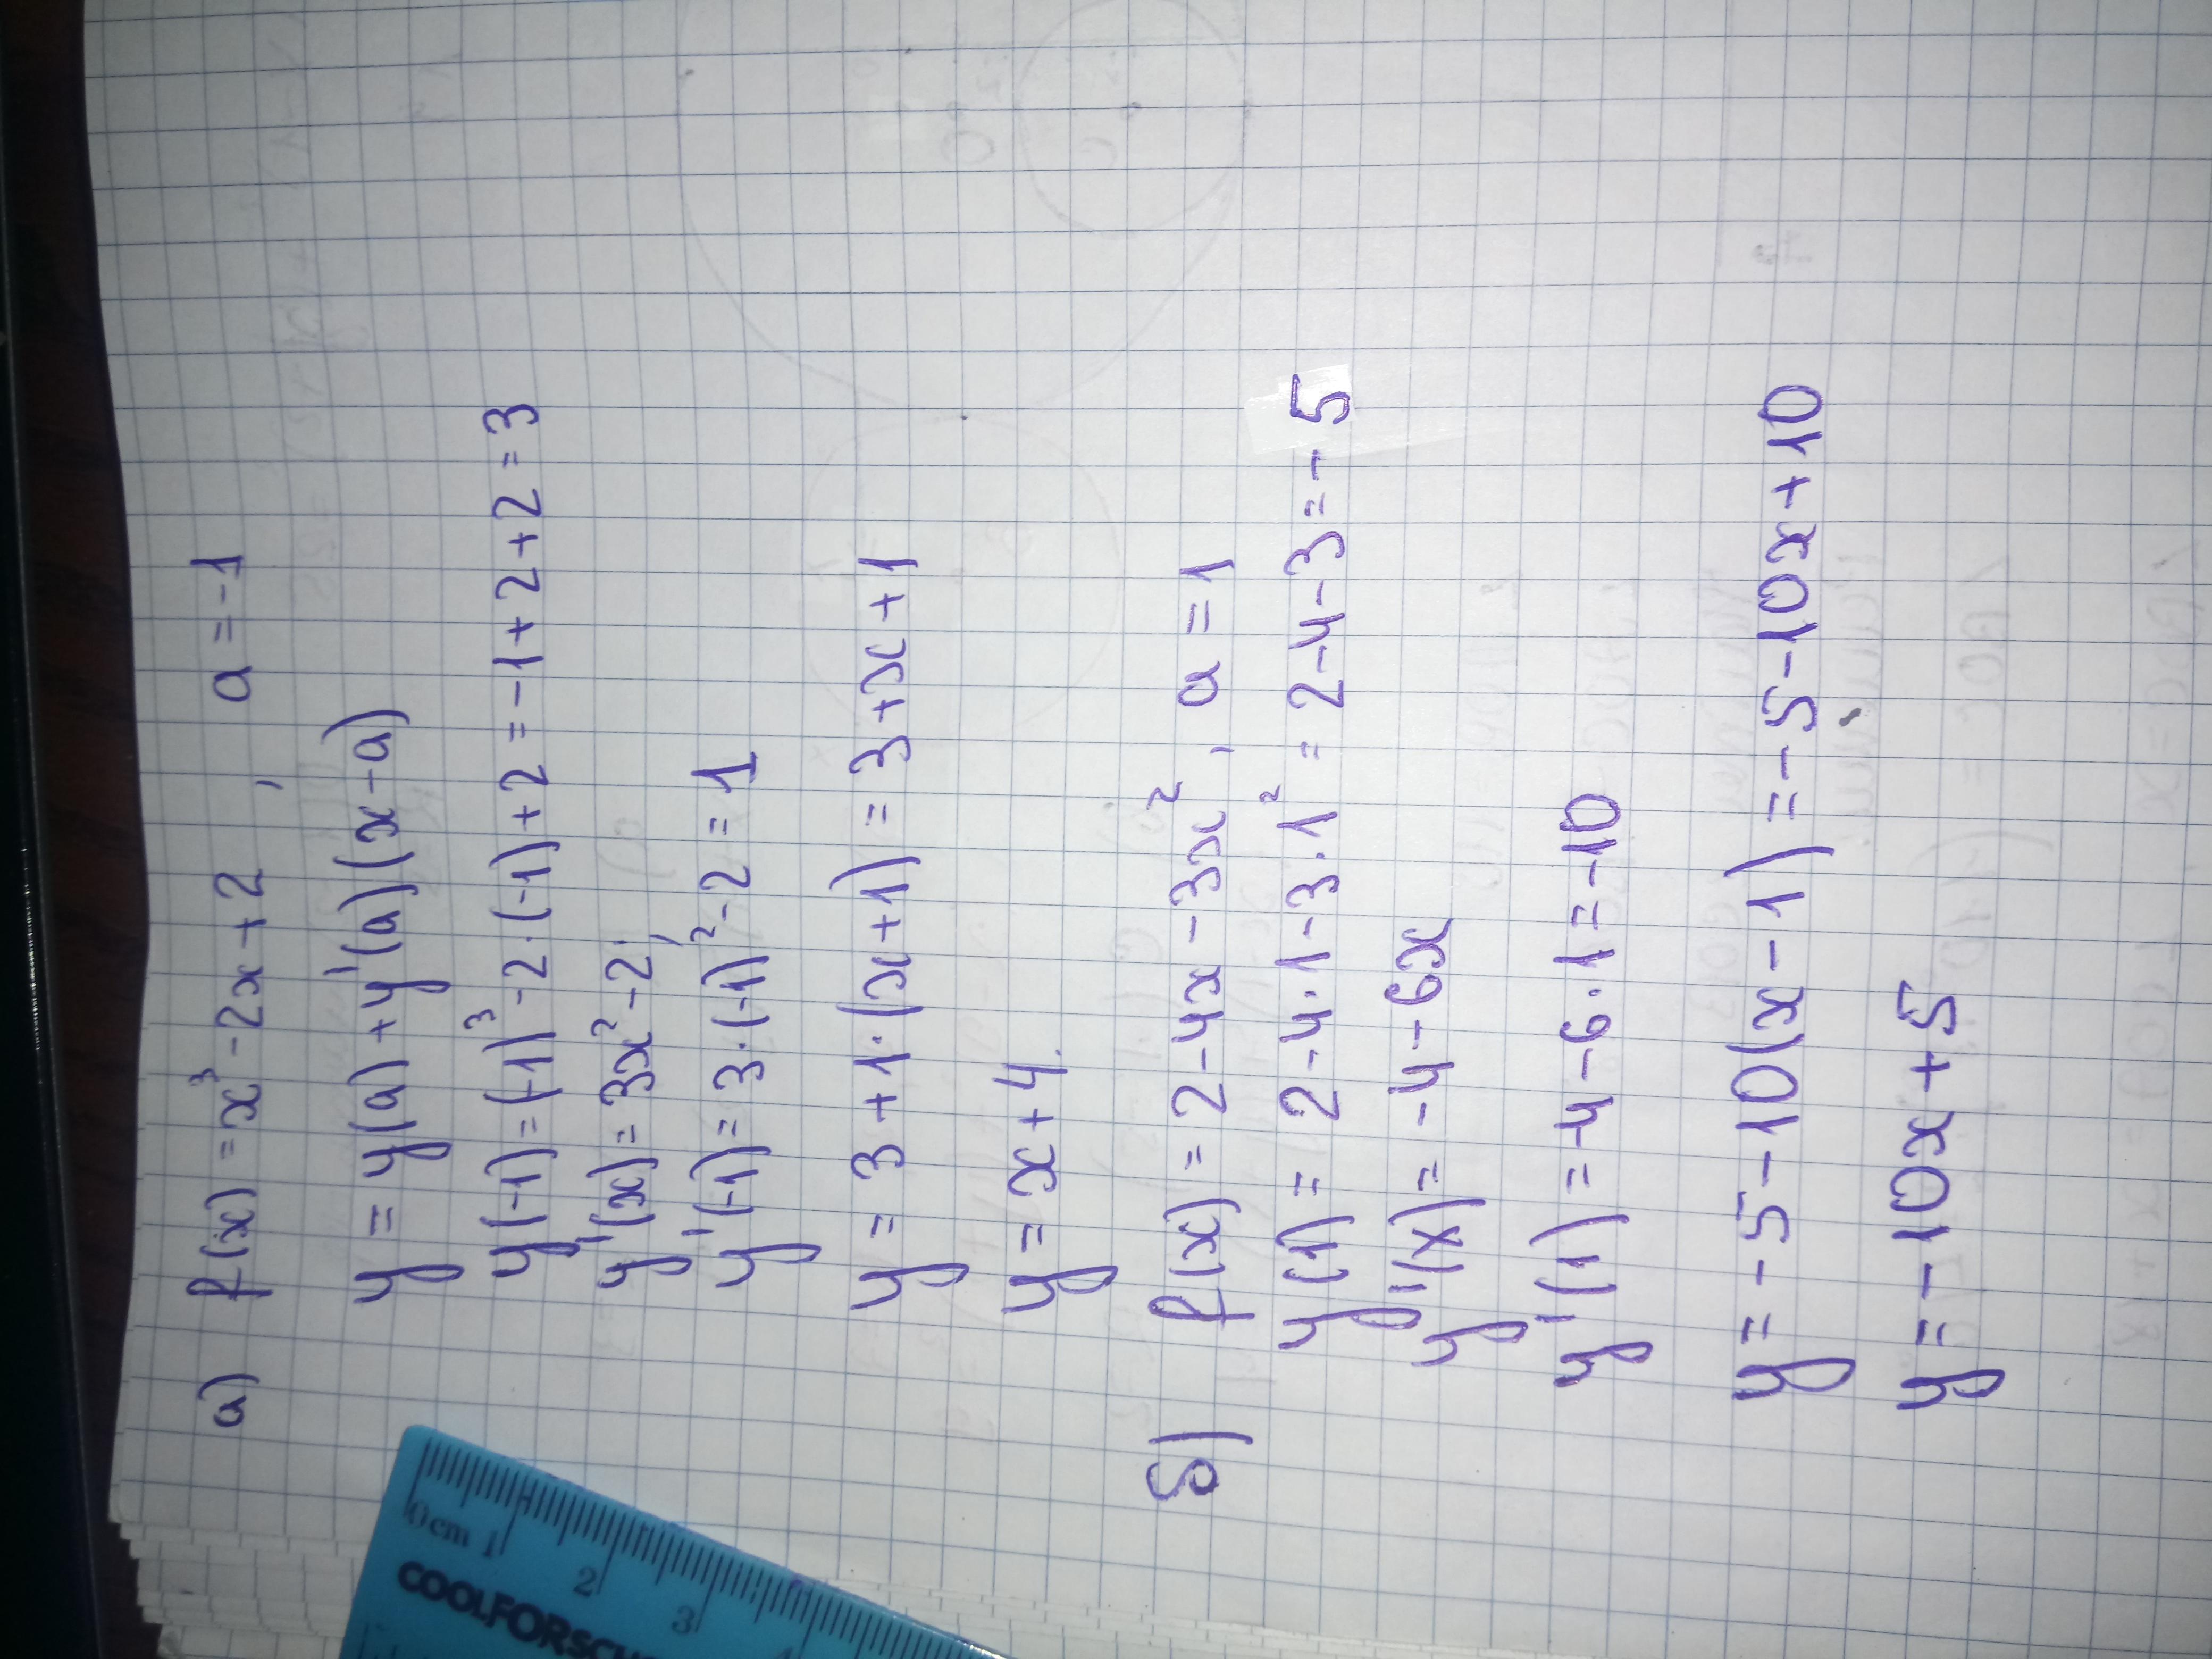 а) f(x) = x³ - 2x + 2 , a = -1
y = y(a) + y'(a)(x - a)
y(-1) = (-1)³ - 2·(-1) + 2 = -1 + 2 + 2 = 3
y'(x) = 3x² - 2;
y'(-1) = 3·(-1)² - 2 = 1
y = 3 + 1·(x + 1) = 3 + x + 1
y = x + 4.
б) f(x) = 2 - 4x - 3x² , a = 1
y(1) = 2 - 4·1 - 3·1² = 2 - 4 - 3 = - 5
y'(x) = -4 - 6x
y'(1) = -4 - 6·1 = -10
y = -5 - 10(x - 1) = -5 - 10x + 10
y = -10x + 5
0cm 1 2 3 4